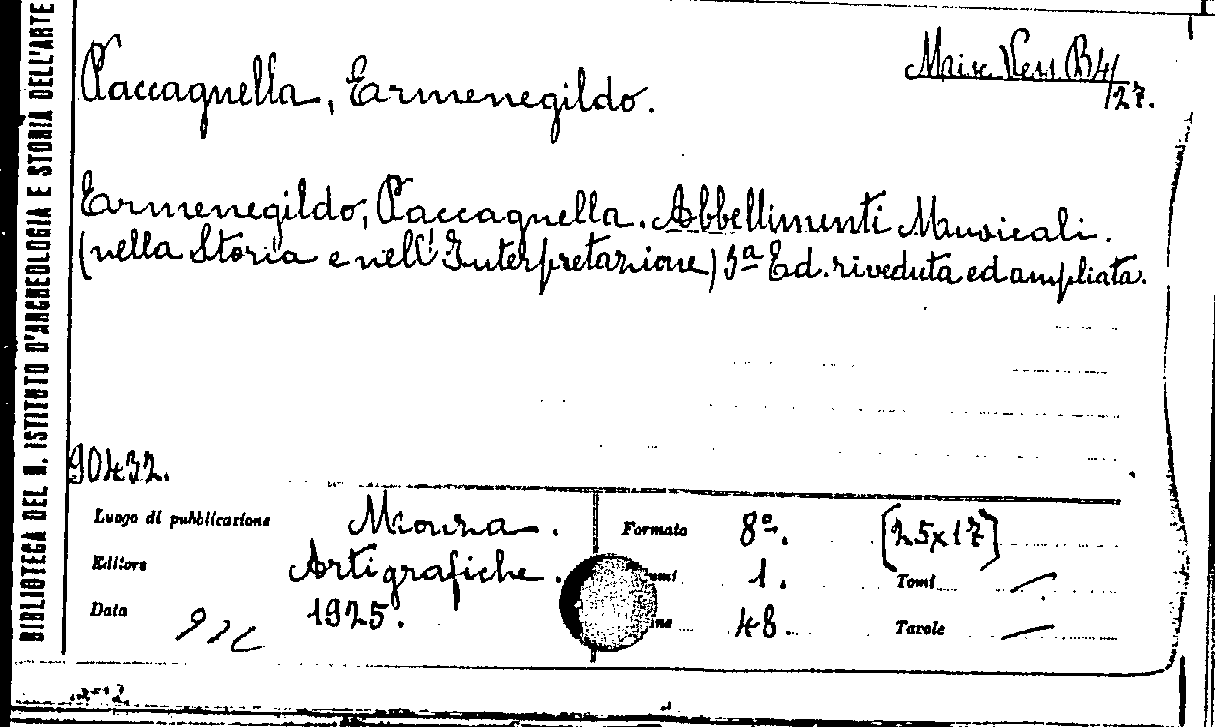 BIBLIOTECA DEL R. ISTITUTO D'ARCHEOLOGIA E STORIA DELL'ARTE
Paccagnella, Ermenegildo.
B 4/27.
Ermenegildo, Paccagnella. Abbellimenti Musicali.
(nella Storia e nell'Interpretazione) 3ª Ed. riveduta ed ampliata.
90432.
Luogo di pubblicazione Monza. Formato 8º. [25x17]
Editore Artigrafiche. 1. Tomi —
Data 1925. 48. Tavole —